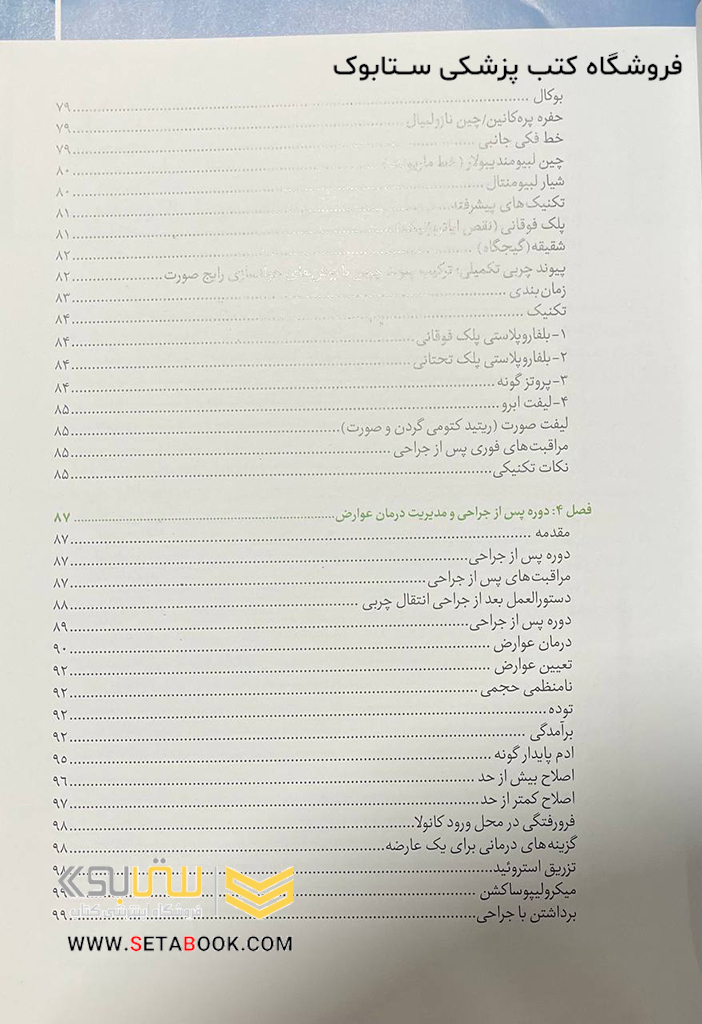 فروشگاه کتب پزشکی ستابوک
بوکال ........ ۷۹
حفره پره‌کانین/چین نازولبیال ........ ۷۹
خط فکی جانبی ........ ۷۹
چین لبیومندیبولار (خط ماریونت) ........ ۸۰
شیار لبیومنتال ........ ۸۰
تکنیک‌های پیشرفته ........ ۸۱
پلک فوقانی (نقص ........ ۸۱
شقیقه (گیجگاه) ........ ۸۲
پیوند چربی تکمیلی؛ ترکیب پیوند چربی با رایج صورت ........ ۸۲
زمان‌بندی ........ ۸۳
تکنیک ........ ۸۴
۱-بلفاروپلاستی پلک فوقانی ........ ۸۴
۲-بلفاروپلاستی پلک تحتانی ........ ۸۴
۳-پروتز گونه ........ ۸۴
۴-لیفت ابرو ........ ۸۵
لیفت صورت (ریتید کتومی گردن و صورت) ........ ۸۵
مراقبت‌های فوری پس از جراحی ........ ۸۵
نکات تکنیکی ........ ۸۵
فصل ۴: دوره پس از جراحی و مدیریت درمان عوارض ........ ۸۷
مقدمه ........ ۸۷
دوره پس از جراحی ........ ۸۷
مراقبت‌های پس از جراحی ........ ۸۷
دستورالعمل بعد از جراحی انتقال چربی ........ ۸۸
دوره پس از جراحی ........ ۸۹
درمان عوارض ........ ۹۰
تعیین عوارض ........ ۹۲
نامنظمی حجمی ........ ۹۲
توده ........ ۹۲
برآمدگی ........ ۹۲
ادم پایدار گونه ........ ۹۵
اصلاح بیش از حد ........ ۹۶
اصلاح کمتر از حد ........ ۹۷
فرورفتگی در محل ورود کانولا ........ ۹۸
گزینه‌های درمانی برای یک عارضه ........ ۹۸
تزریق استروئید ........ ۹۸
میکرولیپوساکشن ........ ۹۹
برداشتن با جراحی ........ ۹۹
ستابوک
فروشگاه اینترنتی کتاب
WWW.SETABOOK.COM